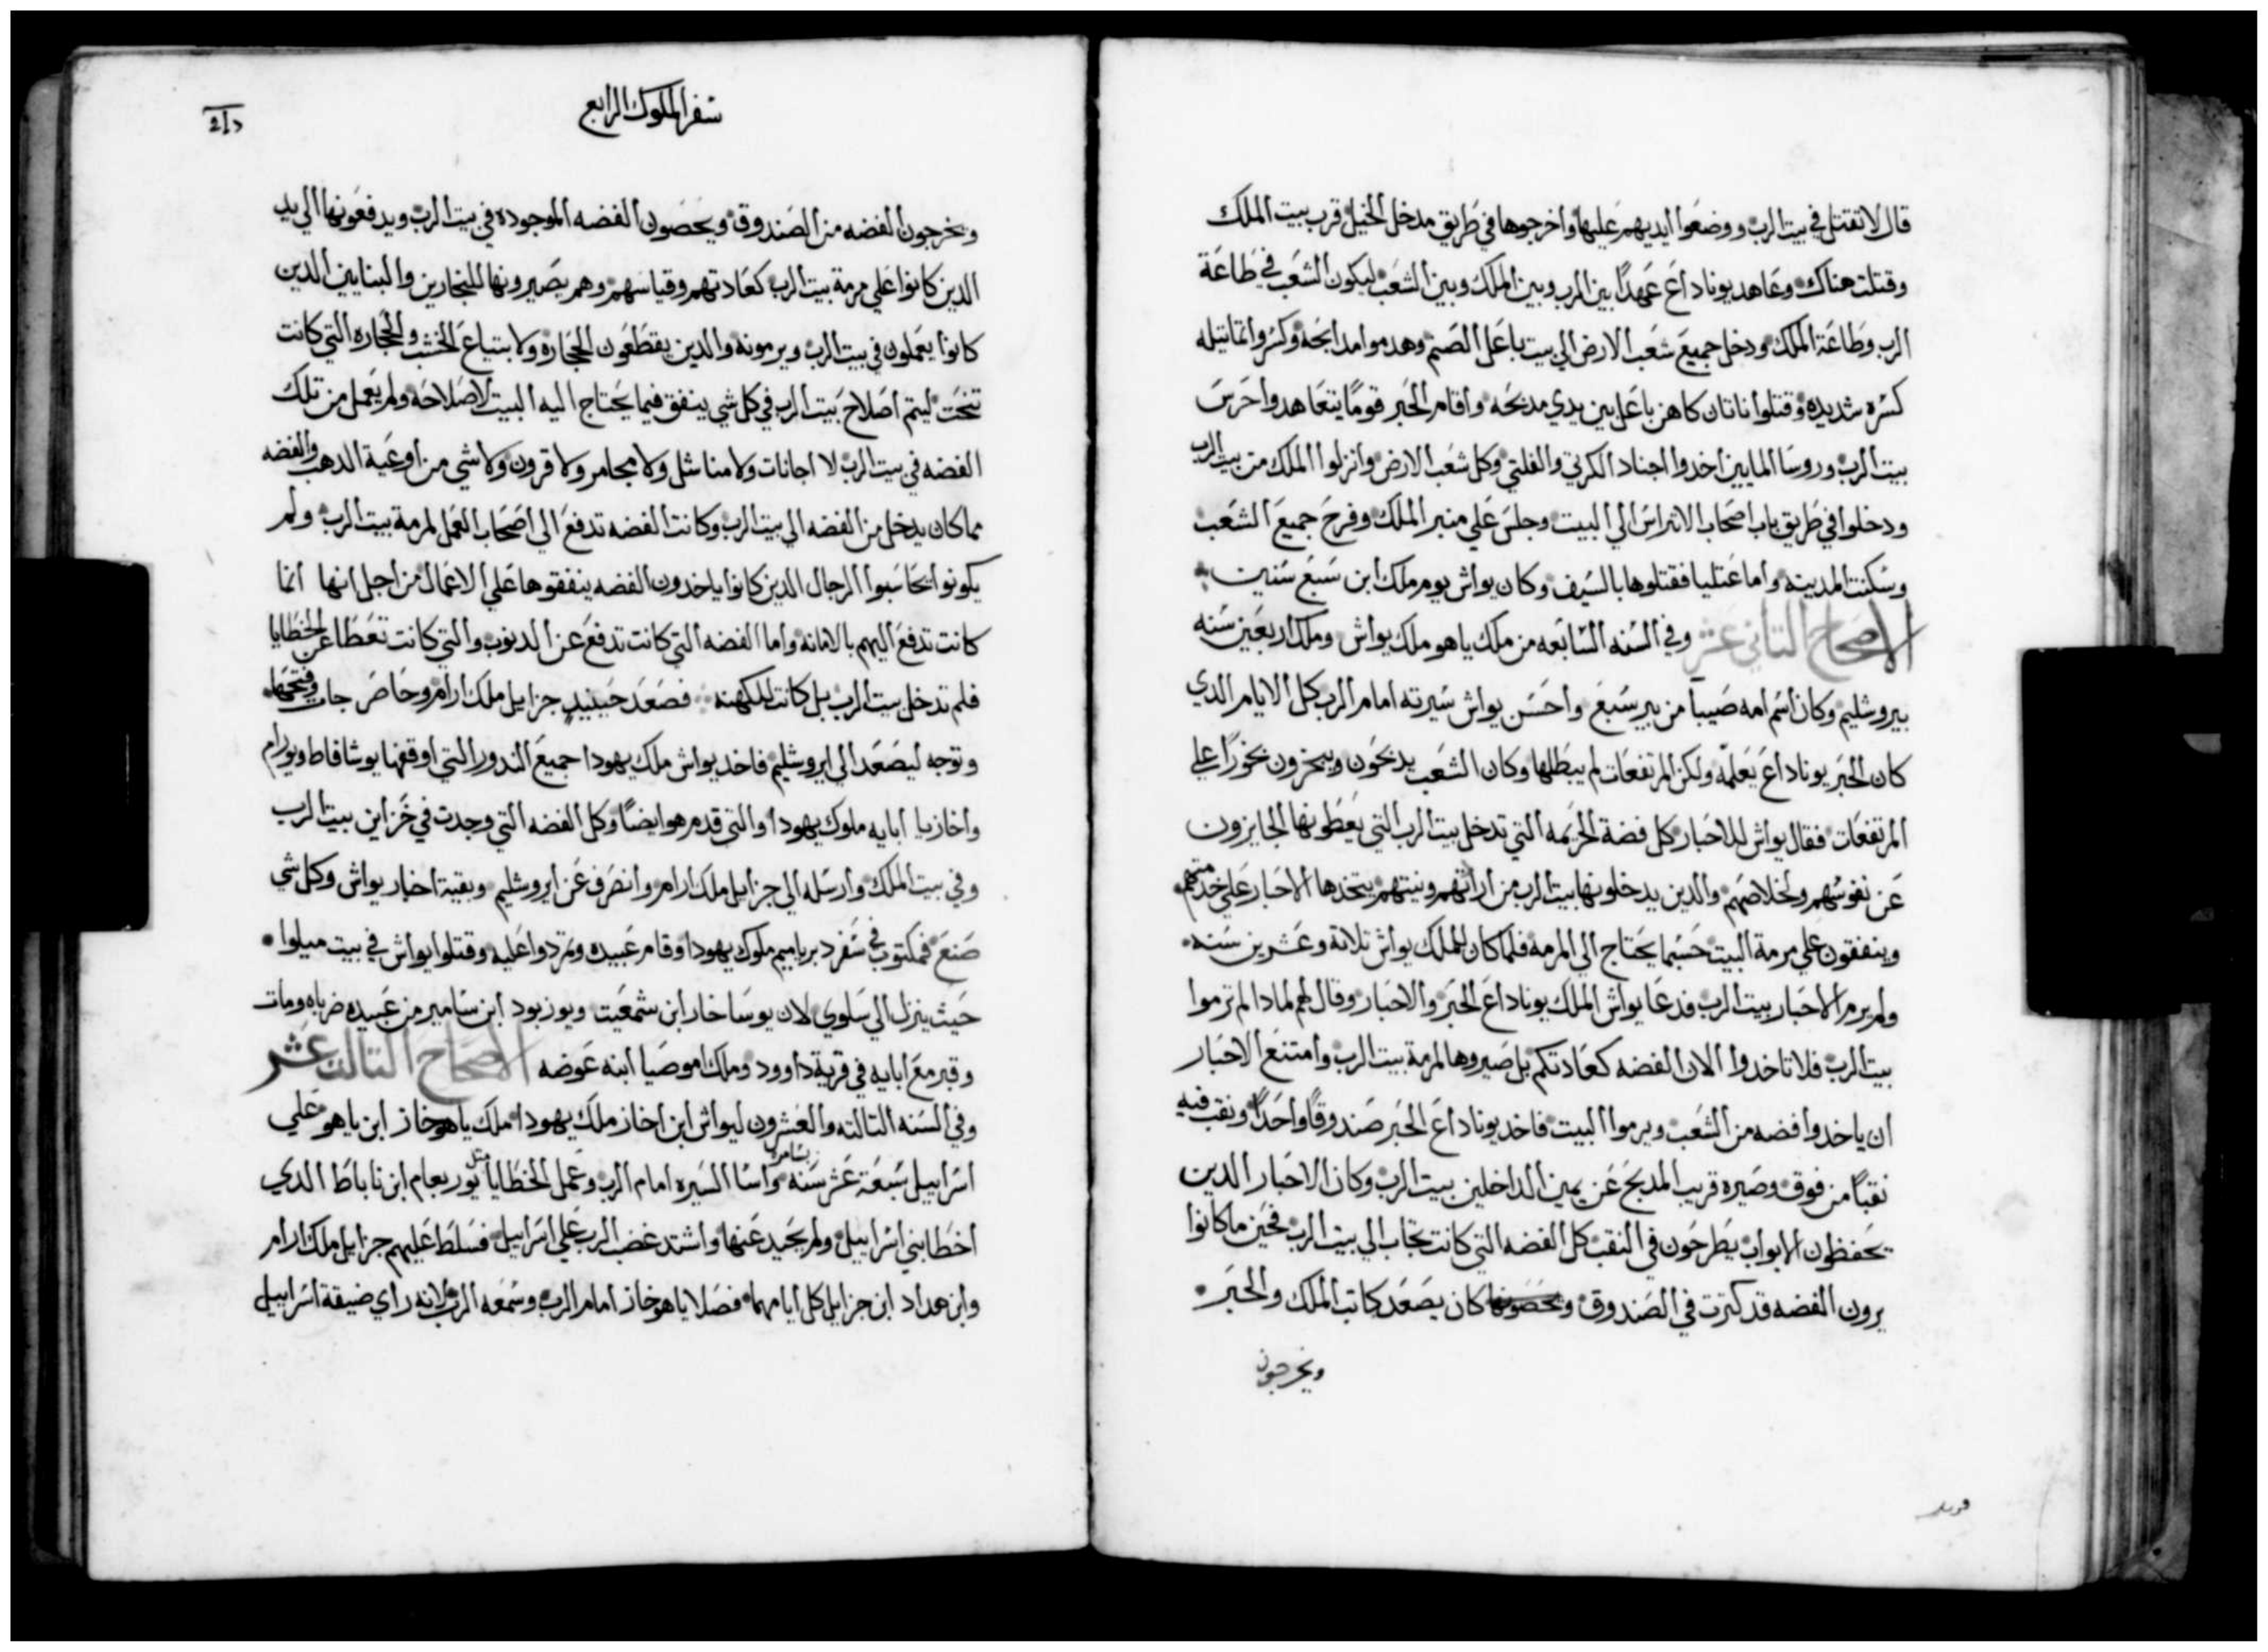 قال لا تقتل في بيت الرب ووضعوا ايديهم عليها واخرجوها في طريق مدخل الخيل قرب بيت الملك
وقتلت هناك وعاهد يوناداع عهدًا بين الرب وبين الملك وبين الشعب ليكون الشعب في طاعة
الرب وطاعة الملك ودخل جميع شعب الارض الي بيت باعل الصنم وهدموا مدابحه وكسروا تماتيله
كسره شديده وقتلوا ناتان كاهن باعل بين يدي مدبحه واقام الحبر قومًا يتعاهدوا حرس
بيت الرب وروسا المايين اخدوا اجناد الكرتي والفلتي وكل شعب الارض وانزلوا الملك من بيت الرب
ودخلوا في طريق باب اصحاب الاتراس الي البيت وجلس علي منبر الملك وفرح جميع الشعب
وسكنت المدينه واما عتليا فقتلوها بالسيف وكان يواش يوم ملك ابن سبع سنين
الاصحاح التاني عشر وفي السنه السابعه من ملك ياهو ملك يواش وملك اربعين سنه
بيروشليم وكان اسم امه صيبا من بير سبع واحسن يواش سيرته امام الرب كل الايام الدي
كان الحبر يوناداع يعلمه ولكن المرتفعات لم يبطلها وكان الشعب يدبحون ويبخرون بخورًا علي
المرتفعات فقال يواش للاحبار كل فضة الحرمه التي تدخل بيت الرب التي يعطونها الجايزون
عن نفوسهم ولخلاصهم والدين يدخلونها بيت الرب من اراتهم ونيتهم يتخدها الاحبار علي خدمتهم
وينفقون علي مرمة البيت حسبما يحتاج الي المرمه فلما كان للملك يواش تلاتة وعشرين سنه
ولم يرم الاحبار بيت الرب فدعا يواش الملك يوناداع الحبر والاحبار وقال لهم لمادا لم ترموا
بيت الرب فلا تاخدوا الان الفضه كعادتكم بل صيروها لمرمة بيت الرب وامتنع الاحبار
ان ياخدوا فضه من الشعب ويرموا البيت فاخد يوناداع الحبر صندوقًا واحدًا ونقب فيه
نقبًا من فوق وصيره قريب المدبح عن يمين الداخلين بيت الرب وكان الاحبار الدين
يحفظون الابواب يطرحون في النقب كل الفضه التي كانت تجاب الي بيت الرب فحين ما كانوا
يرون الفضه قد كترت في الصندوق كان يصعد كاتب الملك والحبر
ويخرجون
سفر الملوك الرابع
ويخرجون الفضه من الصندوق ويحصون الفضه الموجوده في بيت الرب ويدفعونها الي يد
الدين كانوا علي مرمة بيت الرب كعادتهم وقياسهم وهم يصيرونها للنجارين والبنايين الدين
كانوا يعملون في بيت الرب ويرمونه والدين يقطعون الحجاره ولابتياع الخشب والحجاره التي كانت
تنحت ليتم اصلاح بيت الرب في كل شي ينفق فيما يحتاج اليه البيت لاصلاحه ولم يعمل من تلك
الفضه في بيت الرب لا اجانات ولا مناشل ولا مجامر ولا قرون ولا شي من اوعية الدهب والفضه
مما كان يدخل من الفضه الي بيت الرب وكانت الفضه تدفع الي اصحاب العمل لمرمة بيت الرب ولم
يكونوا يحاسبوا الرجال الدين كانوا ياخدون الفضه ينفقوها علي الاعمال من اجل انها انما
كانت تدفع اليهم بالامانه واما الفضه التي كانت تدفع عن الدنوب والتي كانت تعطا عن الخطايا
فلم تدخل بيت الرب بل كانت للكهنه فصعد حينيد جزايل ملك ارام وحاصر جات وفتحها
وتوجه ليصعد الي ايروشليم فاخد يواش ملك يهودا جميع الندور التي اوقفها يوشافاط ويورام
واخازيا ابايه ملوك يهودا والتي قدم هو ايضًا وكل الفضه التي وجدت في خزاين بيت الرب
وفي بيت الملك وارسله الي جزايل ملك ارام وانصرف عن ايروشليم وبقية اخبار يواش وكل شي
صنع فمكتوب في سفر دبرياميم ملوك يهودا وقام عبيده وتمردوا عليه وقتلوا يواش في بيت ميلوا
حيث ينزل الي سلوي لان يوساخار ابن شمعيت ويوزبود ابن سامير من عبيده ضرباه ومات
وقبر مع ابايه في قرية داوود وملك اموصيا ابنه عوضه الاصحاح التالت عشر
وفي السنه التالته والعشرون ليواش ابن اخاز ملك يهودا ملك ياهوخاز ابن ياهو علي
اسراييل بسامره سبعة عشر سنه واسا السيره امام الرب وعمل الخطايا متل يوربعام ابن ناباط الدي
اخطا بني اسراييل ولم يحيد عنها واشتد غضب الرب علي اسراييل فسلط عليهم جزايل ملك ارام
وابن عداد ابن جزايل كل ايامهما فصلا ياهوخاز امام الرب وسمعه الرب لانه راي ضيقة اسراييل